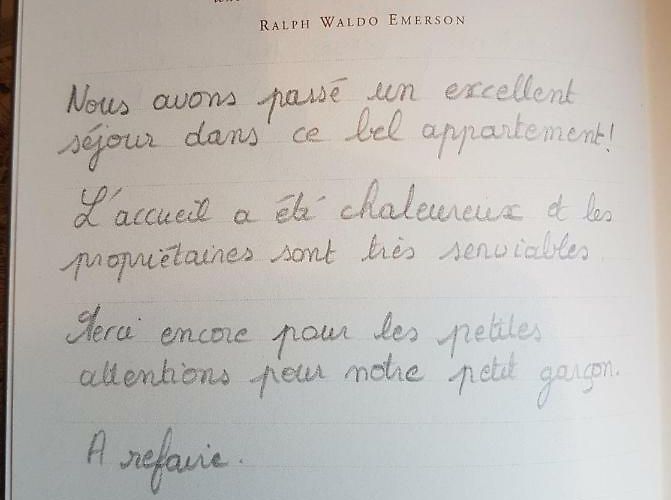 RALPH WALDO EMERSON
Nous avons passé un excellent
séjour dans ce bel appartement!
L'accueil a été chaleureux et les
propriétaires sont très serviables.
Merci encore pour les petites
attentions pour notre petit garçon.
A refaire.